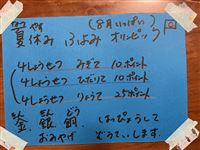 (8月いっぱい)
夏休み ふよみ オリンピック
4しょうせつ みぎて 10ポイント
4しょうせつ ひだりて 10ポイント
4しょうせつ りょうて 25ポイント
きん ぎん どう
金 銀 銅 はっぴょうして
おみやげ ぞうていします。